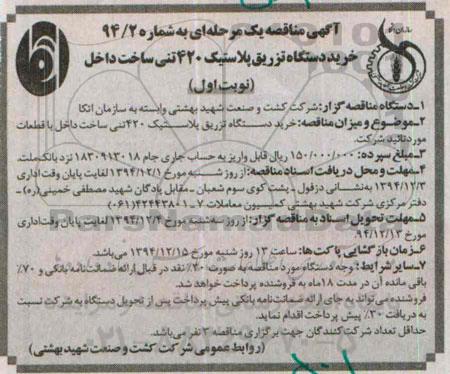 آگهی مناقصه یک مرحله‌ای به شماره ۹۴/۲
خرید دستگاه تزریق پلاستیک ۴۲۰ تنی ساخت داخل
(نوبت اول)
۱ـ دستگاه مناقصه گزار: شرکت کشت و صنعت شهید بهشتی وابسته به سازمان اتکا
۲ـ موضوع و میزان مناقصه: خرید دستگاه تزریق پلاستیک ۴۲۰ تنی ساخت داخل با قطعات
مورد تائید شرکت.
۳ـ مبلغ سپرده: ۱۵۰/۰۰۰/۰۰۰ ریال قابل واریز به حساب جاری جام ۱۸۳۰۹۱۳۰۱۸ نزد بانک ملت.
۴ـ مهلت و محل دریافت اسناد مناقصه: از روز شنبه مورخ ۱۳۹۴/۱۲/۱ لغایت پایان وقت اداری
۱۳۹۴/۱۲/۳ به نشانی دزفول ـ پشت کوی سوم شعبان ـ مقابل پادگان شهید مصطفی خمینی(ره) ـ
دفتر مرکزی شرکت شهید بهشتی کمیسیون معاملات ۷ـ۴۲۴۴۳۸۰۱(۰۶۱)
۵ـ مهلت تحویل اسناد به مناقصه گزار: از روز سه شنبه مورخ ۱۳۹۴/۱۲/۴ لغایت پایان وقت اداری
مورخ ۹۴/۱۲/۱۳.
۶ـ زمان بازگشایی پاکت‌ها: ساعت ۱۳ روز شنبه مورخ ۱۳۹۴/۱۲/۱۵ می‌باشد.
۷ـ سایر شرایط: وجه دستگاه مورد مناقصه به صورت ۳۰٪ نقد در قبال ارائه ضمانت‌نامه بانکی و ۷۰٪
باقی مانده آن در مدت ۱۸ ماه به فروشنده پرداخت خواهد شد.
فروشنده می‌تواند به جای ارائه ضمانت‌نامه بانکی پیش پرداخت پس از تحویل دستگاه به شرکت نسبت
به دریافت ۳۰٪ پیش پرداخت اقدام نماید.
حداقل تعداد شرکت‌کنندگان جهت برگزاری مناقصه ۳ نفر می‌باشد.
(روابط عمومی شرکت کشت و صنعت شهید بهشتی)